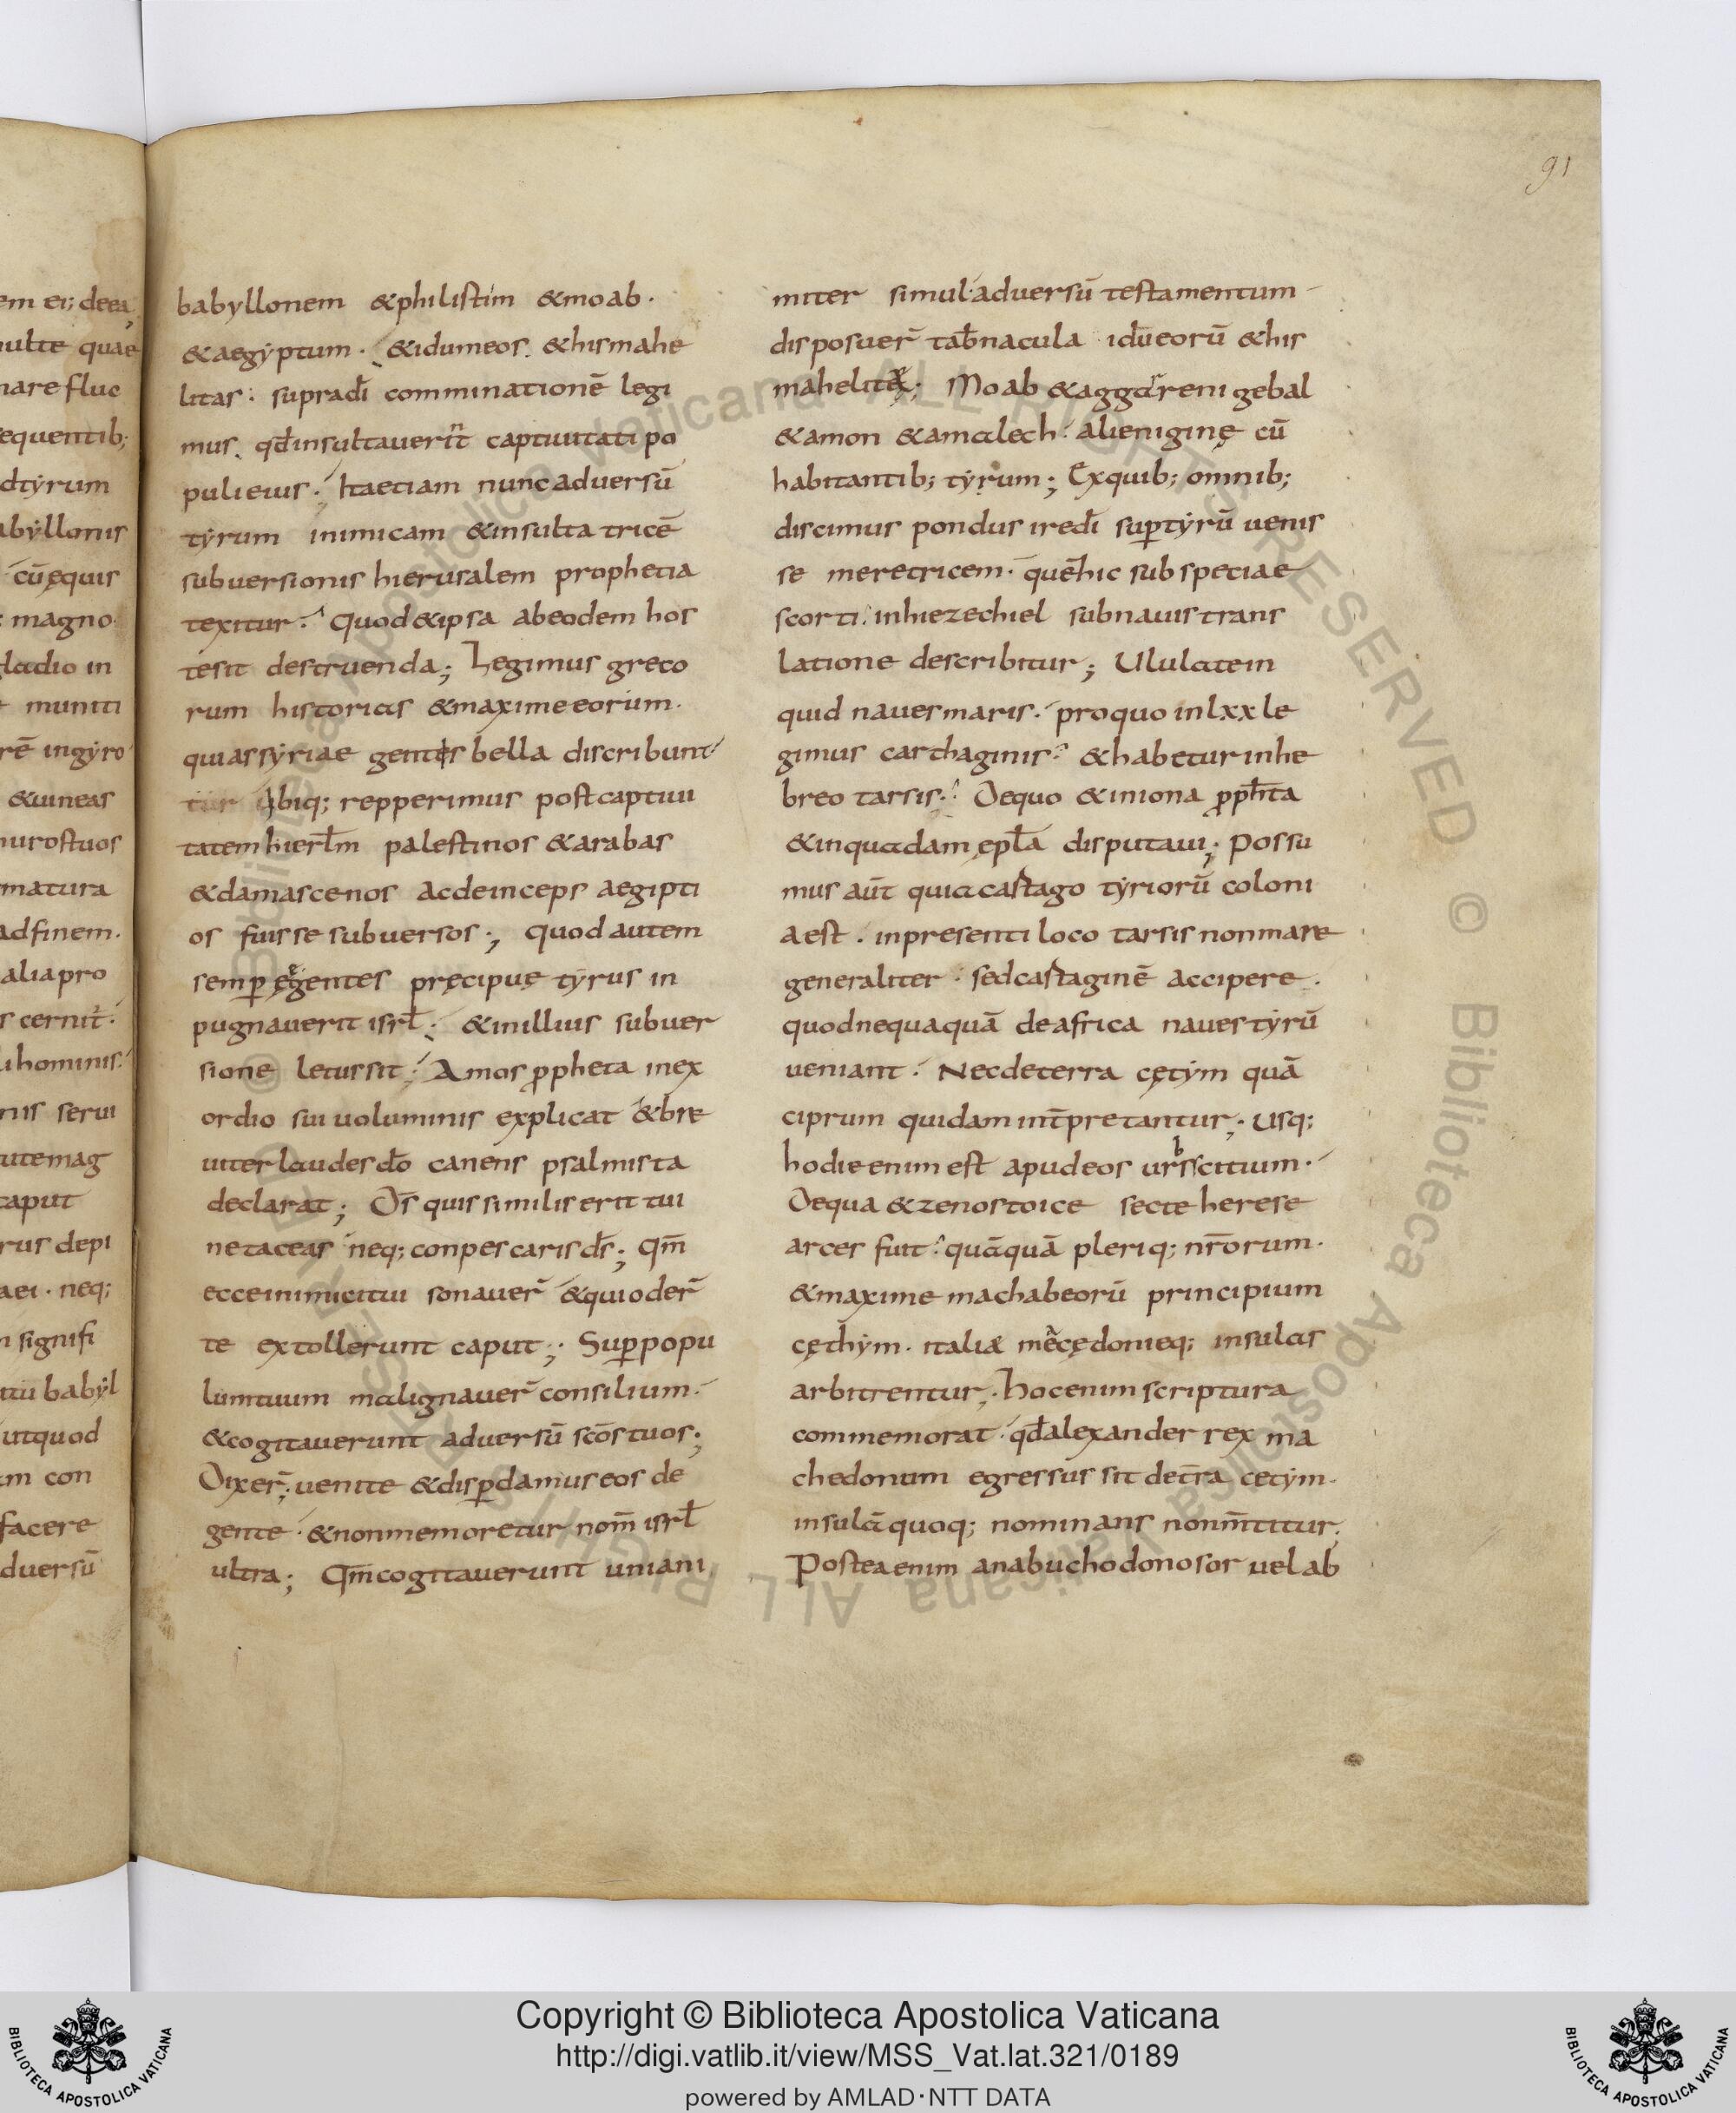 91
em ei; deea
multe quae
nare fluc
equentib;
dtyrum
abyllonis
cū ęquis
magno
ladio in
muniti
rē ingyro
&uineas
murostuos
matura
adfinem.
aliapro
s cernit̄
hominis
nis serui
utemag
caput
rus depi
aei. neq;
signifi
babyl
utquod
m con
facere
duersū
babyllonem &philistim &moab.
&aegyptum. &idumeos. &hismahe
litas: supradi̅ comminationē legi
mus. qđinsultauerīt captiuitati po
puli eius. Ita etiam nunc aduersū
tyrum inimicam &insulta tricē
subuersionis hierusalem prophetia
texitur. Quod&ipsa abeodem hos
tesit destruenda; Legimus greco
rum historias &maxime eorum.
qui assyriae gentis bella discribunt
Ubiq; repperimus post captiui
tatem hierłm palestinos &arabas
&damascenos acdeinceps aegipti
os fuisse subuersos; quod autem
semp ęgentes pręcipuę tyrus in
pugnauerit isrł. &inillius subuer
sione letussit. Amos ppheta inex
ordio sui uoluminis explicat &bre
uiter laudesdo̅ canens psalmista
declarat; D̄s quis similis erit tui
netaceas neq; conpescaris ds̄; Qm̄
ecceinimicitui sonauer̄ &quioder̄
te extollerunt caput; Sup popu
lumtuum malignauer̄ consilium.
&cogitauerunt aduersū scōs tuos;
Dixer̄; uenite &dispdamus eos de
gente. &nonmemoretur nom̄ isrł
ultra; Qm̄cogitauerunt unani
miter simul aduersū testamentum
disposuer̄ tab̄nacula idūeorū &his
mahelitę; Moab &aggareni gebal
&amon &amalech. alieniginę cū
habitantib; tyrum; Exquib; omnib;
discimus pondus iredi̅ sup tyrū uenis
se meretricem. quē hic sub speciae
scorti. inhiezechiel subnauis trans
latione describitur; Ululatein
quid naues maris. proquo inlxx le
gimus carthaginis. &habetur inhe
breo tarsis. Dequo &iniona pph̄ta
&inquadam epła disputaui; Possu
mus aūt quia castago tyriorū coloni
aest. inpresenti loco tarsis nonmare
generaliter. sedcastaginē accipere.
quodnequaquā deafrica naues tyrū
ueniant. Necdeterra cętym quā
ciprum quidam int̄pretantur. Usq;
hodie enim est apudeos urbs citium.
Dequa &zenostoice secte herese
arces fuit. quāquā pleriq; nr̄orum.
&maxime machabeorū principium
cęthym. italiæ męcędonieq; insulas
arbitrentur. hocenim scriptura
commemorat. qđalexander rex ma
chedonum egressus sit det̄ra cetym.
insulāquoq; nominans nonm̄titur.
Postea enim anabuchodonosor uel ab
© Biblioteca Apostolica Vaticana ALL RIGHTS RESERVED © Biblioteca Apostolica Vaticana ALL RIGHTS RESERVED
Copyright © Biblioteca Apostolica Vaticana
http://digi.vatlib.it/view/MSS_Vat.lat.321/0189
powered by AMLAD·NTT DATA
BIBLIOTECA APOSTOLICA VATICANA
BIBLIOTECA APOSTOLICA VATICANA